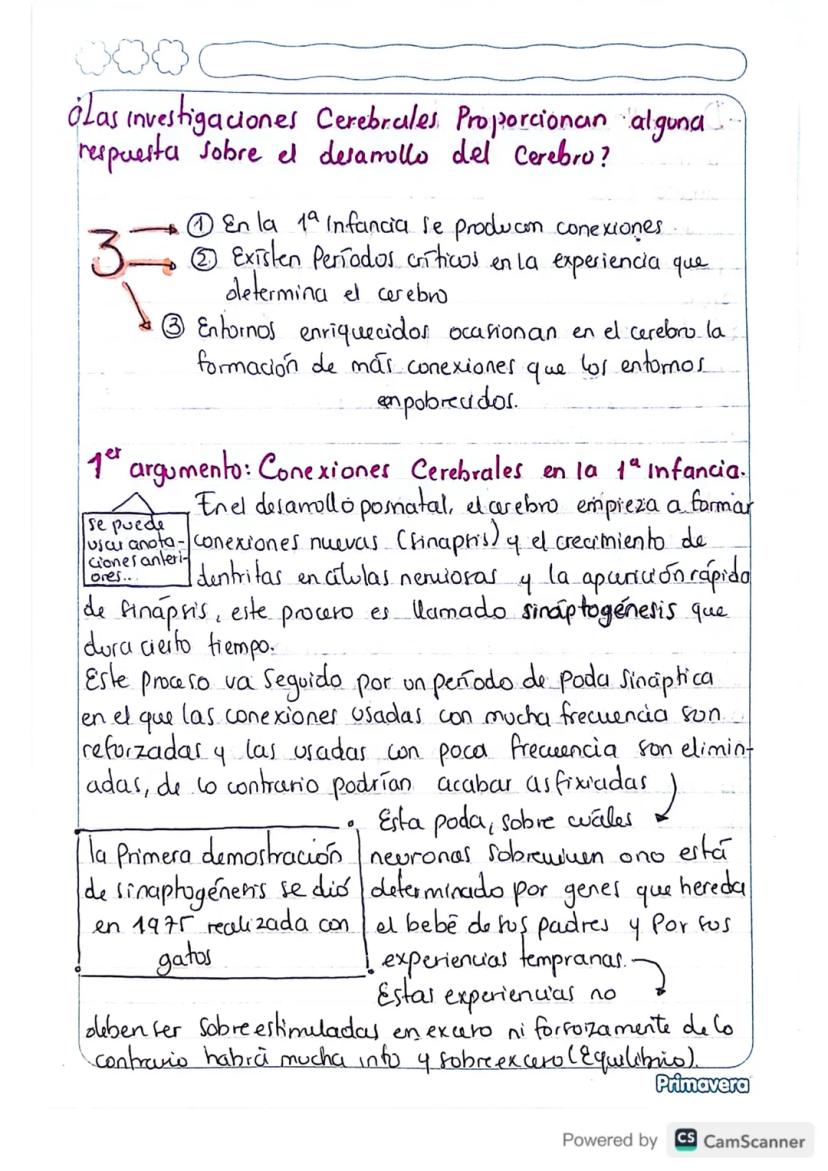 ¿Las investigaciones Cerebrales Proporcionan alguna
respuesta sobre el desarrollo del Cerebro?
3
① En la 1ª Infancia se producen conexiones
② Existen Períodos críticos en la experiencia que
determina el cerebro
③ Entornos enriquecidos ocasionan en el cerebro la
formación de más conexiones que los entornos
empobrecidos.
1er argumento: Conexiones Cerebrales en la 1ª Infancia.
En el desarrollo posnatal, el cerebro empieza a formar
se puede
usar anota-
ciones anteri-
ores...
conexiones nuevas (sinapsis) y el crecimiento de
dentritas en células nerviosas y la aparición rápida
de sinápsis, este proceso es llamado sináptogénesis que
dura cierto tiempo.
Este proceso va seguido por un período de poda sináptica
en el que las conexiones usadas con mucha frecuencia son
reforzadas y las usadas con poca frecuencia son elimin-
adas, de lo contrario podrían acabar asfixiadas
Esta poda, sobre cuáles
neuronas sobreviven o no está
determinado por genes que hereda
el bebé de sus padres y Por sus
experiencias tempranas.
la Primera demostración
de sinaptogénesis se dió
en 1975 realizada con
gatos
Estas experiencias no
deben ser sobreestimuladas en exceso ni forzosamente de lo
contrario habrá mucha info y sobreexceso (Equilibrio).
Primavera
Powered by CS CamScanner